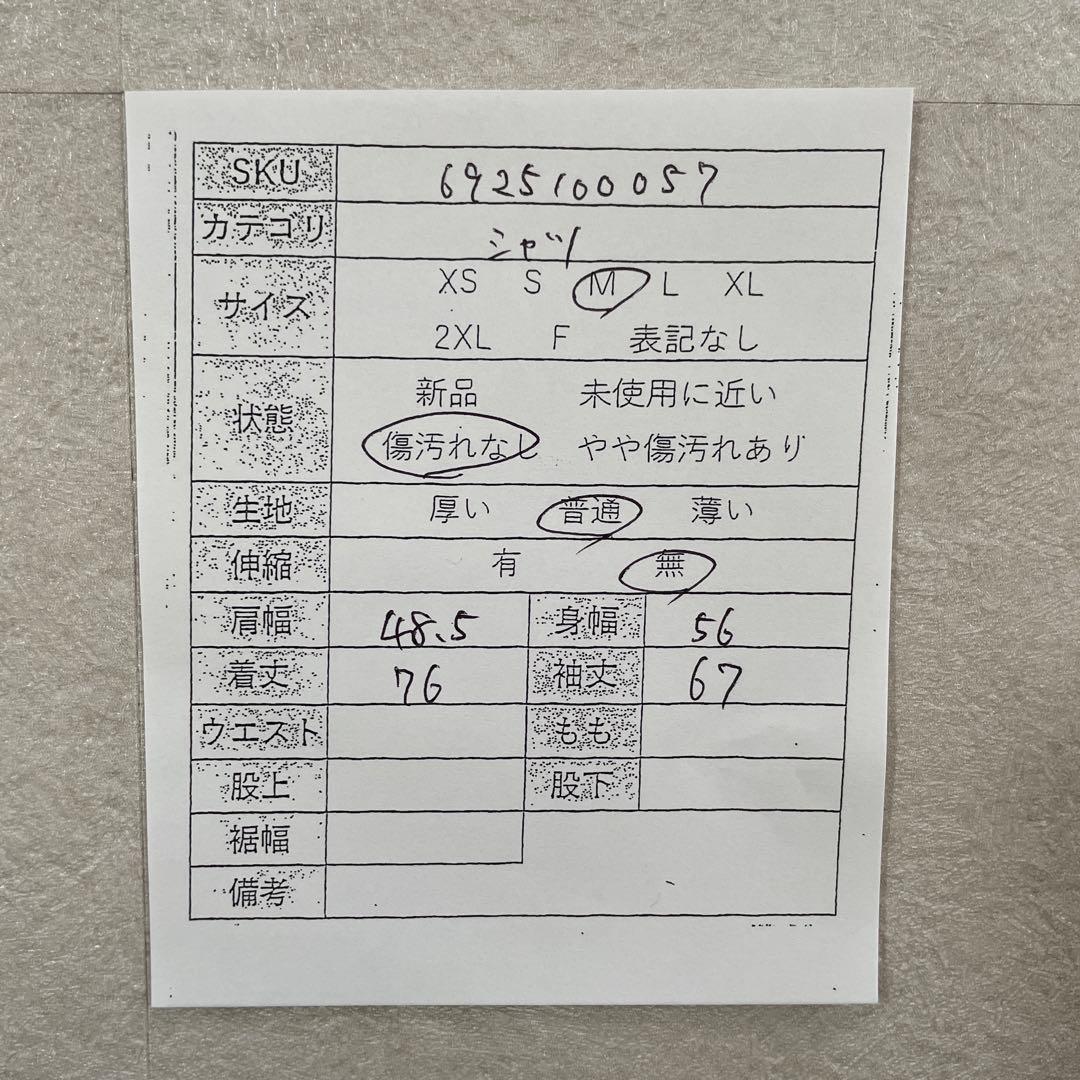 SKU 6925100057
カテゴリ シャツ
サイズ XS S M L XL
2XL F 表記なし
状態 新品 未使用に近い
傷汚れなし やや傷汚れあり
生地 厚い 普通 薄い
伸縮 有 無
肩幅 48.5 身幅 56
着丈 76 袖丈 67
ウエスト もも
股上 股下
裾幅
備考